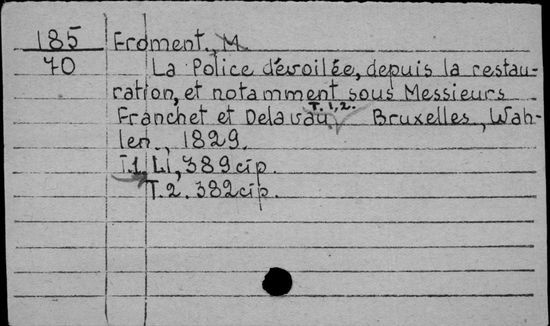 185 Froment, M.
70 La Police dévoilée, depuis la restau-
ration, et notamment sous Messieurs
T. 1, 2.
Franchet et Delavau Bruxelles, Wah-
len., 1829.
T.1, LI, 389 cip.
T. 2. 382 cip.